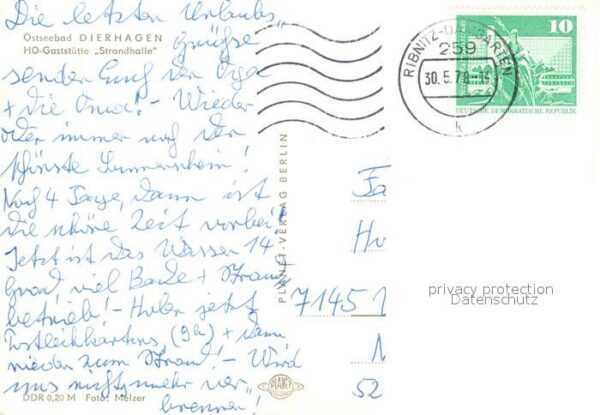 Die letzten Urlaubs-
Ostseebad DIERHAGEN
HO-Gaststätte „Strandhalle"
grüße
senden Euch der Opa
+ die Oma! – Wieder
oder immer noch der
schönste Sonnenschein!
Noch 4 Tage, dann ist
die schöne Zeit vorbei!
Jetzt ist das Wasser 14
Grad viel Bade + Strand
betrieb! – Holen jetzt
(9h) + dann
wieder zum Strand! – Wird
uns nichts mehr ver-
brennen!
DDR 0,20 M Foto: Melzer
PLANET-VERLAG BERLIN
PLANET
RIBNITZ-DAMGARTEN
259
30.5.78
k
10
DEUTSCHE DEMOKRATISCHE REPUBLIK
Fa
Hu
7145
52
privacy protection
Datenschutz